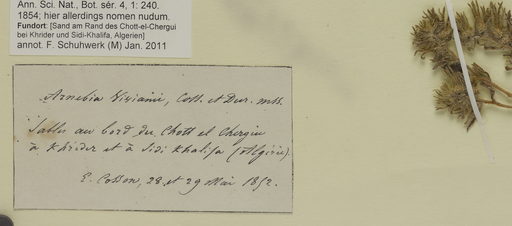 Ann. Sci. Nat., Bot. sér. 4, 1: 240.
1854; hier allerdings nomen nudum.
Fundort: [Sand am Rand des Chott-el-Chergui
bei Khrider und Sidi-Khalifa, Algerien]
annot. F. Schuhwerk (M) Jan. 2011
Arnebia Vivianii, Coss. et Dur. mss.
Sables au bord du Chott el Chergui
à Khrider et à Sidi Khalifa (Algérie).
E. Cosson, 28 et 29 Mai 1852.